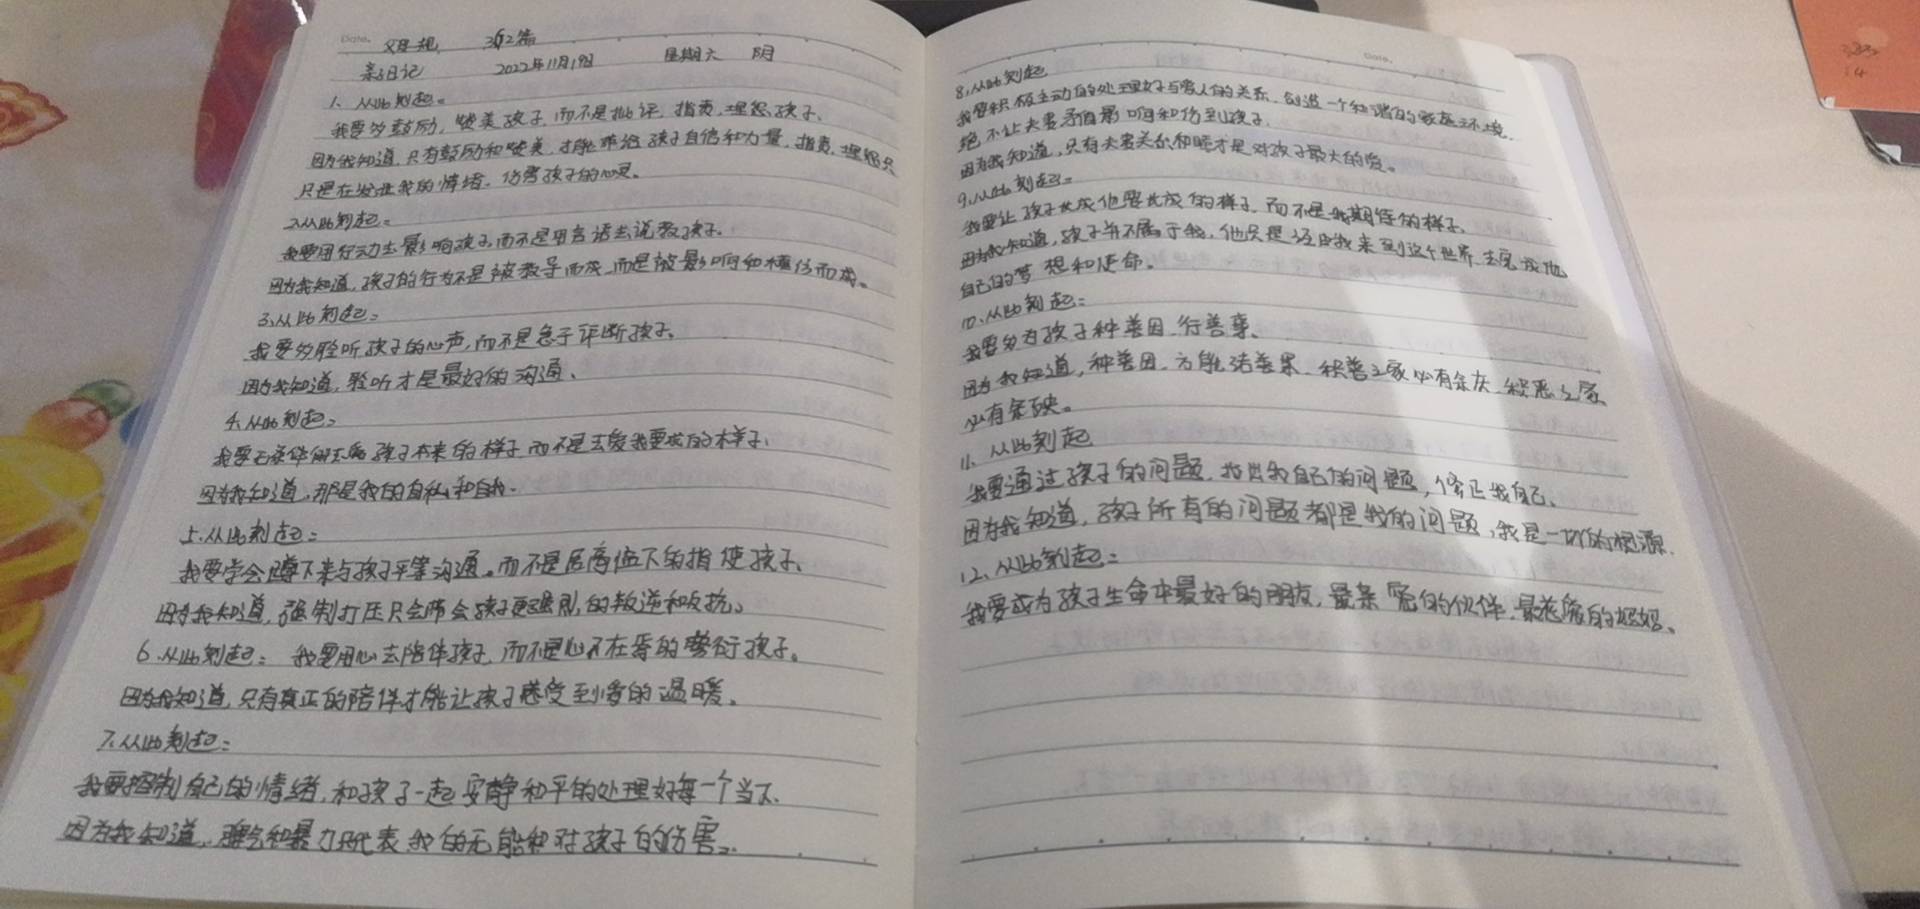 Date.
父母规 362篇
亲子日记 2022年11月19日 星期六 阴
1、从此刻起。
我要多鼓励,赞美孩子,而不是批评,指责,埋怨孩子、
因为我知道,只有鼓励和赞美,才能带给孩子自信和力量,指责,埋怨只
只是在发泄我的情绪、伤害孩子的心灵。
2.从此刻起:
我要用行动去影响孩子,而不是用言语去说教孩子.
因为我知道,孩子的行为不是被教导而成,而是被影响和模仿而成。
3、从此刻起:
我要多聆听孩子的心声,而不是急于评断孩子、
因为我知道,聆听才是最好的沟通、
4、从此刻起:
我要无条件的去爱孩子本来的样子,而不是去爱我要求的样子、
因为我知道,那是我的自私和自我.
5.从此刻起:
我要学会蹲下来与孩子平等沟通。而不是居高临下的指使孩子、
因为我知道,强制打压只会带会孩子更强烈的叛逆和反抗、
6.从此刻起: 我要用心去陪伴孩子,而不是心不在焉的敷衍孩子。
因为我知道,只有真正的陪伴才能让孩子感受到爱的温暖。
7、从此刻起:
我要控制自己的情绪,和孩子一起安静和平的处理好每一个当下、
因为我知道,脾气和暴力只代表我的无能和对孩子的伤害。
Date.
8,从此刻起
我要积极主动的处理好与爱人的关系,创造一个和谐的家庭环境、
绝不让夫妻矛盾影响和伤到孩子.
因为我知道,只有夫妻关系和睦才是对孩子最大的爱。
9,从此刻起:
我要让孩子成成他要成成的样子,而不是我期待的样子、
因为我知道,孩子并不属于我,他只是经由我来到这个世界,去完成他
自己的梦想和使命。
10、从此刻起:
我要多为孩子种善因,行善事、
因为我知道,种善因,方能结善果,积善之家必有余庆,积恶之家
必有余殃。
11、从此刻起
我要通过孩子的问题,找出我自己的问题,修正我自己、
因为我知道,孩子所有的问题都是我的问题,我是一切的根源.
12、从此刻起:
我要成为孩子生命中最好的朋友,最亲密的伙伴,最慈爱的妈妈。